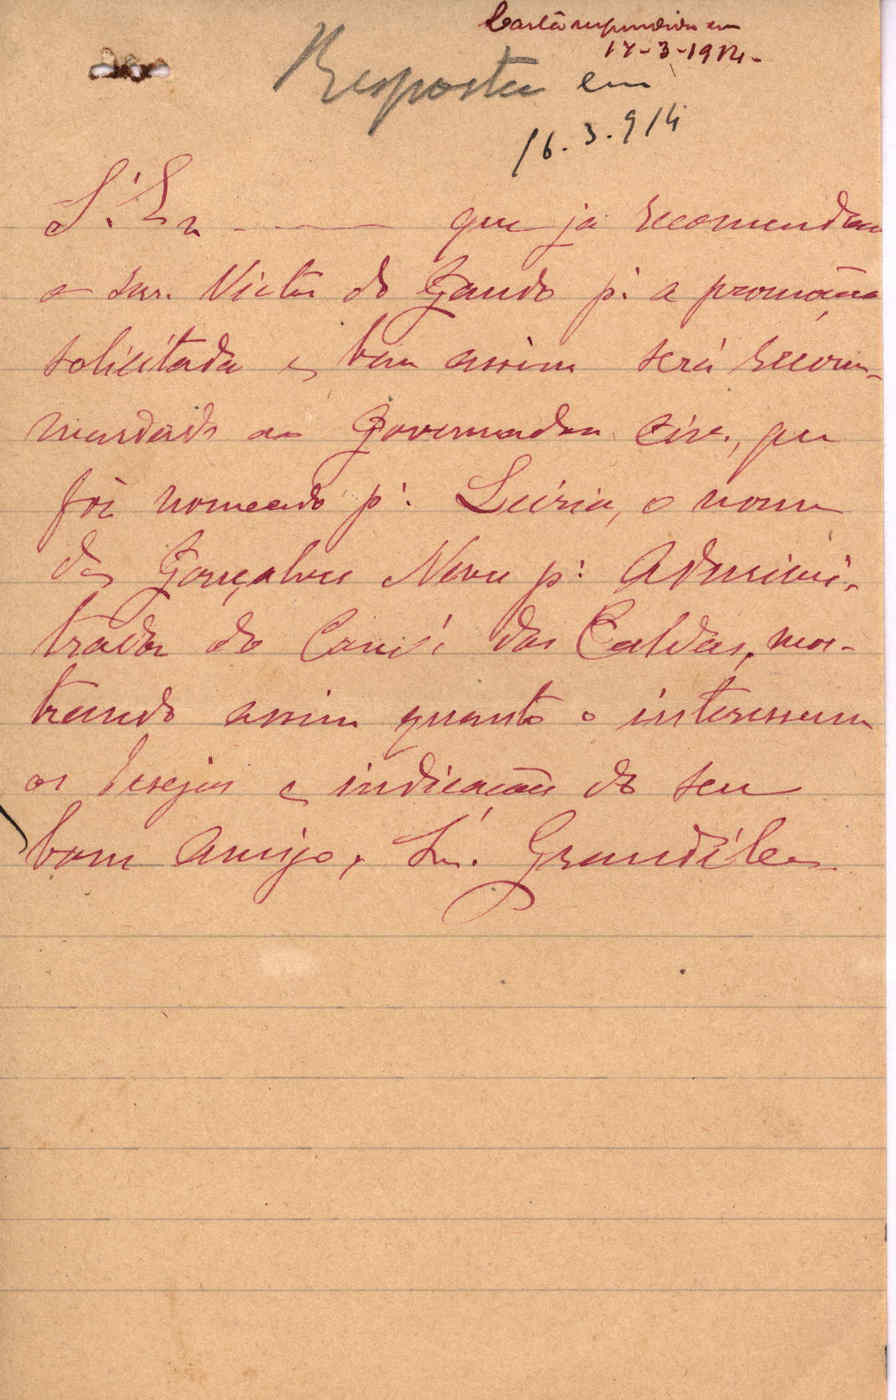 Cartão respondido em
17-3-1914-
Resposta em
16.3.914
S. Ex. ——— que já recomendou
o snr. Victor do Gando p.ª a promoção
solicitada e bem assim será recom-
mendado ao Governador Civ., que
foi nomeado p.ª Leiria, o nome
de Gonçalves Neves p.ª Adminis-
trador do Conc.º das Caldas, mos-
trando assim quanto o interessam
os desejos e indicação do seu
bom amigo, Sr. Grandella